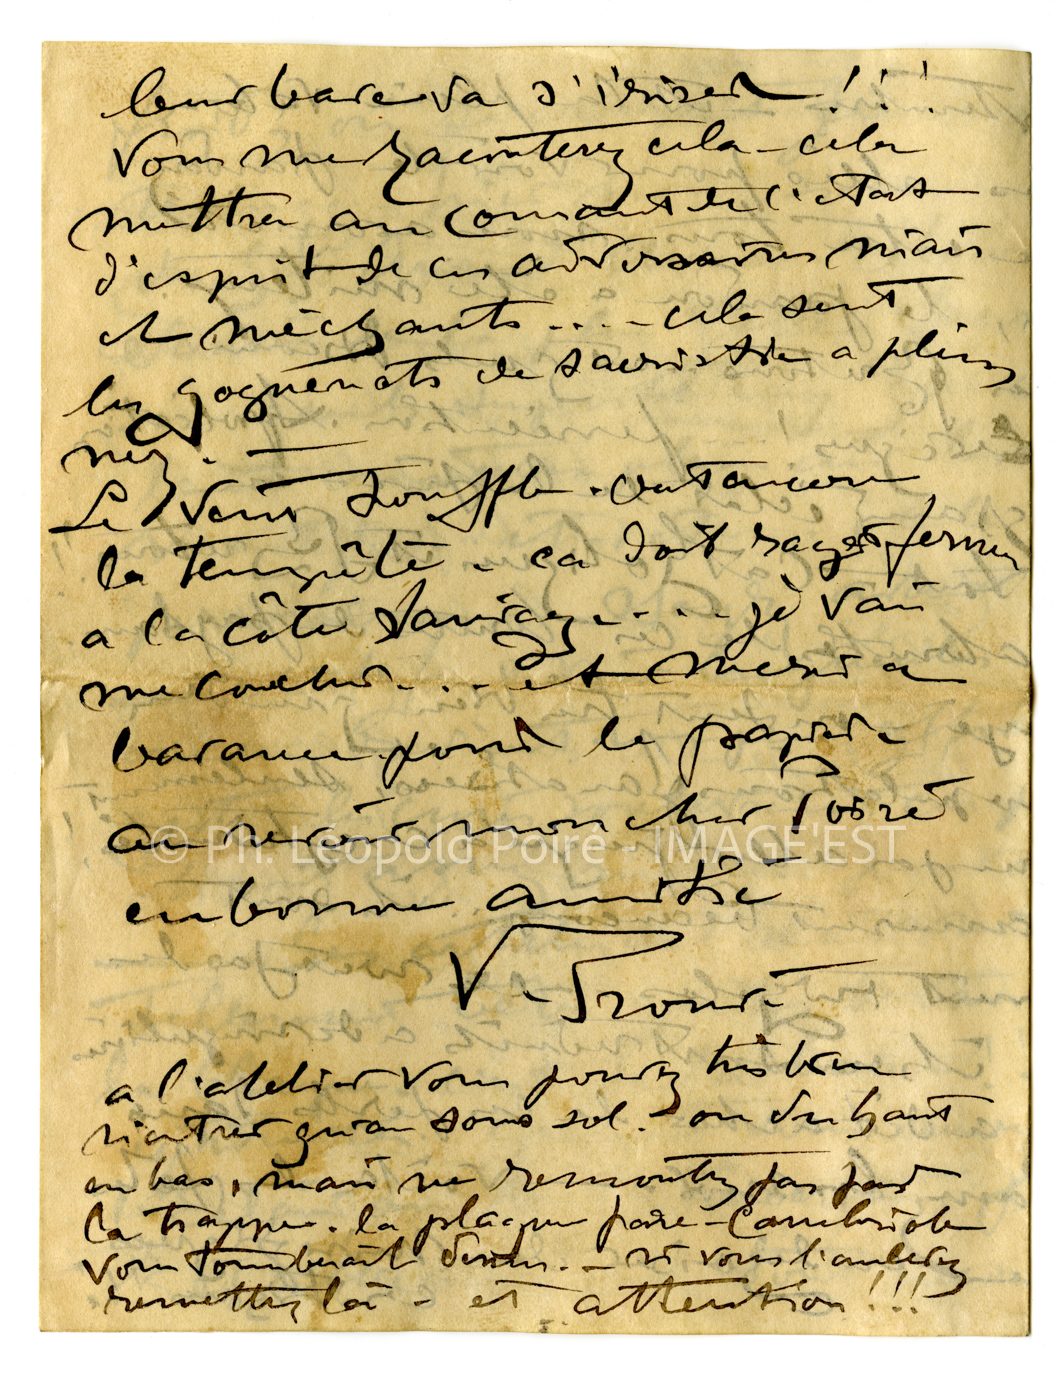 leur bave va s'iriser !!!
Vous me raconterez cela - cela
mettra au courant de l'état
d'esprit de ces adversaires niais
et méchants .... - cela sent
les gognenots de sacristie a plein
nez. —
Le Vent souffle. c'est encore
la tempête - ca doit rager ferme
a la côte Sauvage.... je vais
me coucher... et merci a
bavance pour le papier
au revoir mon cher Poiré
en bonne amitié
V. Prouvé
a l'atelier vous pouvez très bien
rentrer qu'au sous sol. - ou du haut
en bas, mais ne remontez pas par
la trappe. la plaque pare-cambriole
vous tomberait dessus. - si vous l'enlevez
remettez là - et attention !!!
© Ph. Léopold Poiré - IMAGE'EST